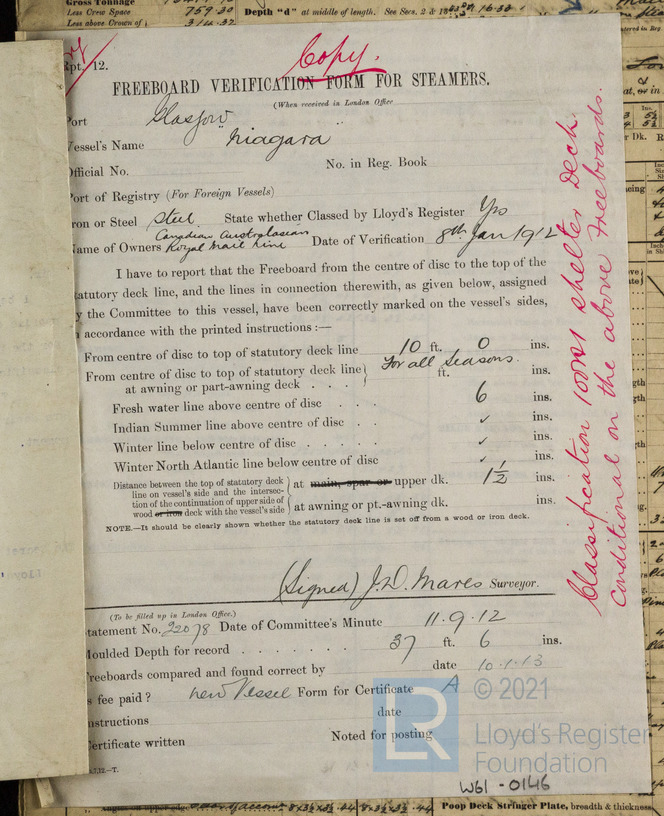 Gross Tonnage
Less Crew Space 759.30 Depth "d" at middle of length. See Secs. 2 & 13 16.33
Less above Crown of 314.37
Copy.
Rpt. 12.
FREEBOARD VERIFICATION FORM FOR STEAMERS.
(When received in London Office
Port Glasgow
Vessel's Name Niagara
Official No. No. in Reg. Book
Port of Registry (For Foreign Vessels)
Iron or Steel Steel State whether Classed by Lloyd's Register Yes
Canadian Australasian
Name of Owners Royal Mail Line Date of Verification 8th Jan 1912
I have to report that the Freeboard from the centre of disc to the top of the
statutory deck line, and the lines in connection therewith, as given below, assigned
by the Committee to this vessel, have been correctly marked on the vessel's sides,
in accordance with the printed instructions :—
From centre of disc to top of statutory deck line 10 ft. 0 ins.
For all Seasons.
From centre of disc to top of statutory deck line ft. ins.
at awning or part-awning deck . . .
Fresh water line above centre of disc . . . 6 ins.
Indian Summer line above centre of disc . . ✓ ins.
Winter line below centre of disc . . . . ✓ ins.
Winter North Atlantic line below centre of disc ✓ ins.
Distance between the top of statutory deck
line on vessel's side and the intersec-
tion of the continuation of upper side of
wood or iron deck with the vessel's side
at main, spar or upper dk. 1½ ins.
at awning or pt.-awning dk. ins.
NOTE.—It should be clearly shown whether the statutory deck line is set off from a wood or iron deck.
(Signed) J. D. Mares Surveyor.
(To be filled up in London Office.)
Statement No. 22078 Date of Committee's Minute 11.9.12
Moulded Depth for record . . . . . . . 37 ft. 6 ins.
Freeboards compared and found correct by date 10.1.13
Is fee paid? new Vessel Form for Certificate A
Instructions date
Certificate written Noted for posting
Classification 100A1 shelter deck.
Conditional on the above freeboards.
LR
© 2021
Lloyd's Register
Foundation
W61-0146
Poop Deck Stringer Plate, breadth & thickness